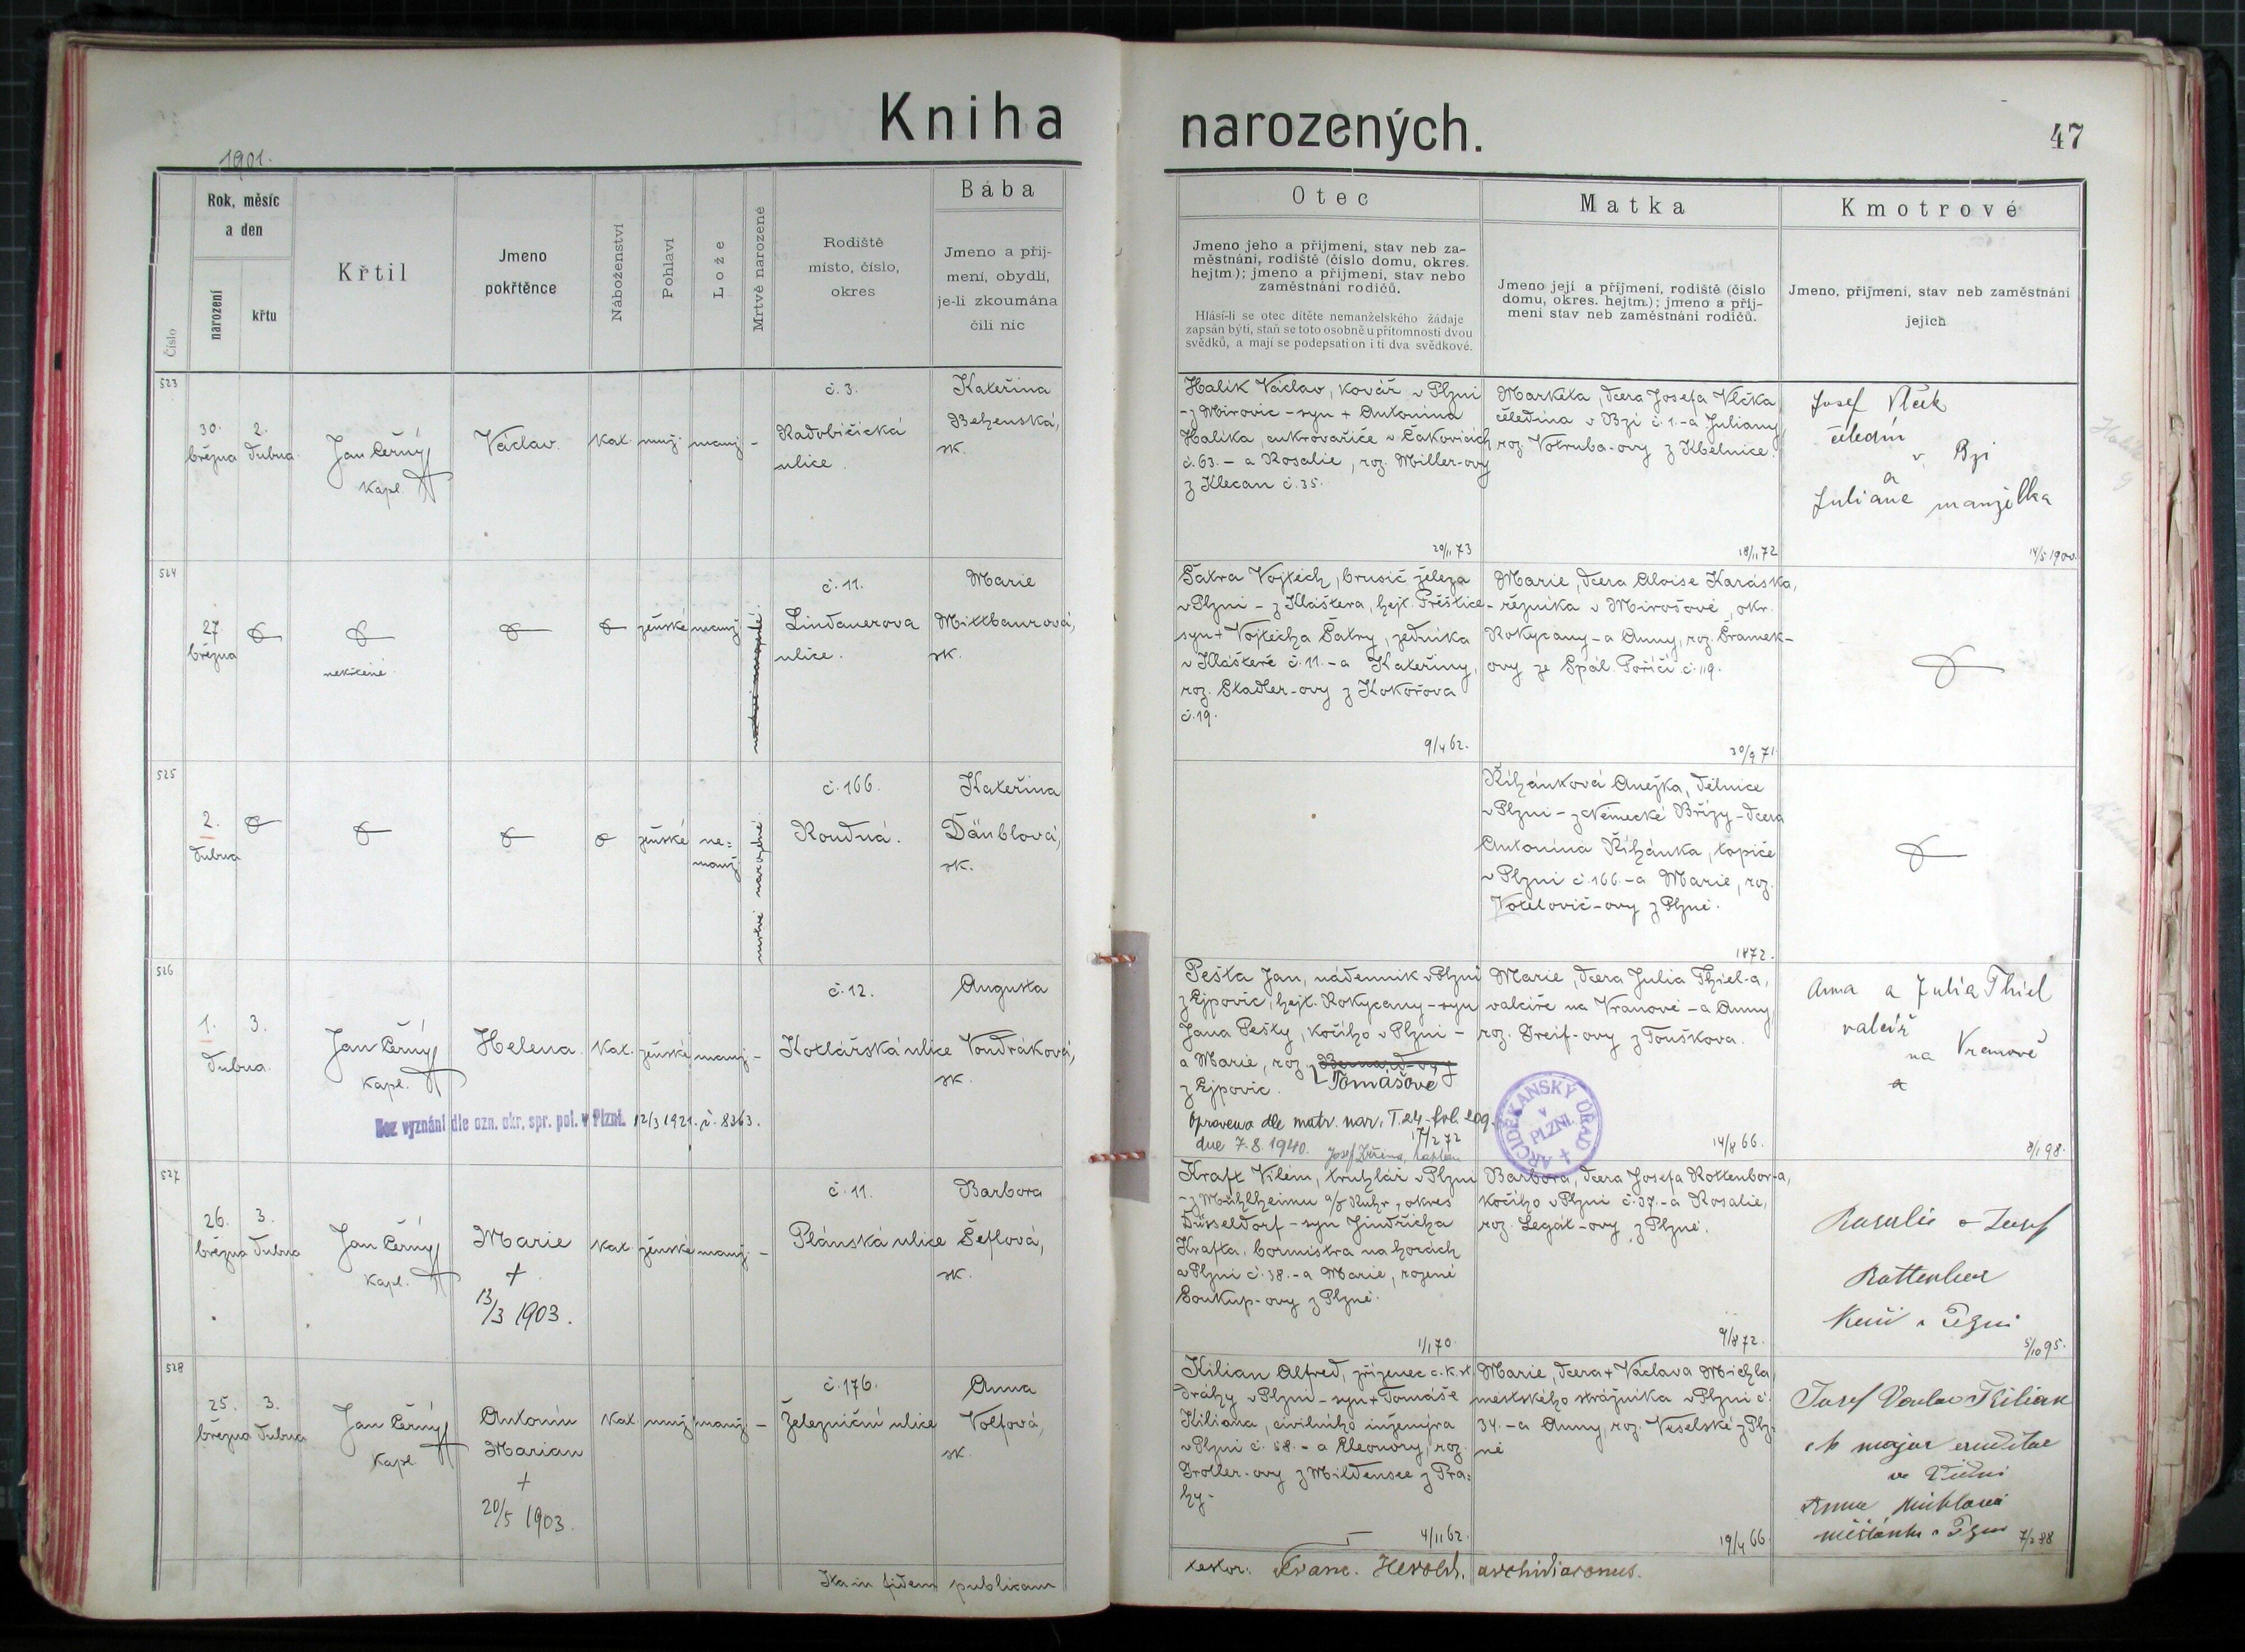 Kniha narozených.
47
1901.
Číslo
Rok, měsíc
a den
narození
křtu
Křtil
Jmeno
pokřtěnce
Náboženství
Pohlaví
Lože
Mrtvě narozené
Rodiště
místo, číslo,
okres
Bába
Jmeno a příj-
mení, obydlí,
je-li zkoumána
čili nic
Otec
Jmeno jeho a příjmení, stav neb za-
městnání, rodiště (číslo domu, okres.
hejtm.); jmeno a příjmení, stav nebo
zaměstnání rodičů.
Hlásí-li se otec dítěte nemanželského žádaje
zapsán býti, staň se toto osobně u přítomnosti dvou
svědků, a mají se podepsati on i ti dva svědkové.
Matka
Jmeno její a příjmení, rodiště (číslo
domu, okres. hejtm.); jmeno a příj-
mení stav neb zaměstnání rodičů.
Kmotrové
Jmeno, příjmení, stav neb zaměstnání
jejich
523
30.
března
2.
dubna
Jan Černý
kapl.
Václav.
kat.
muž.
manž.
-
č. 3.
Radobičická
ulice.
Kateřina
Behenská,
zk.
Halík Václav, kovář v Plzni
- z Mirovic - syn + Antonína
Halíka, cukrovařiče v Čakovicích
č. 63. - a Rosalie, roz. Miller-ovy
z Klecan č. 35.
20/11 73
Markéta, dcera Josefa Vlčka,
čeledína v Bzí č. 1. - a Juliany,
roz. Votruba-ovy z Kbelnice.
18/11 72
Josef Vlček
čeledín
v Bzi
a
Juliane manželka
14/5 1900.
524
27
března
nekřtěné.
ženské
manž.
č. 11.
Lindauerova
ulice.
Marie
Mittbaurová,
zk.
Šatra Vojtěch, brusič železa
v Plzni - z Kláštera, hejt. Přeštice -
syn + Vojtěcha Šatry, zedníka
v Klášteře č. 11. - a Kateřiny,
roz. Stadler-ovy z Kokořova
č. 19.
9/4 62.
Marie, dcera Aloise Karáska,
řezníka v Mirošově, okr.
Rokycany - a Anny, roz. Šramek-
ovy ze Spál. Poříčí č. 119.
30/9 71.
525
2.
dubna
ženské
ne=
manž.
mrtvě narozené.
č. 166.
Roudná.
Kateřina
Däublová,
zk.
Řihánková Anežka, dělnice
v Plzni - z Německé Břízy - dcera
Antonína Řihánka, topiče
v Plzni č. 166. - a Marie, roz.
Votelovič-ovy z Plzně.
1872.
526
1.
dubna.
3.
Jan Černý
kapl.
Helena.
kat.
ženské
manž.
-
č. 12.
Kotlářská ulice
Augusta
Vondráková,
zk.
Bez vyznání dle ozn. okr. spr. pol. v Plzni. 12/3 1921. č. 8363.
Pešta Jan, nádenník v Plzni
z Ejpovic, hejt. Rokycany - syn
Jana Pešty, kočího v Plzni -
a Marie, roz. Bernard-ovy
Tomášové
z Ejpovic.
Opraveno dle matr. nar. T. 24. fol. 209.
dne 7. 8. 1940.
17/2 72
Marie, dcera Julia Thiel-a,
valcíře na Vranově - a Anny
roz. Dreif-ovy z Touškova.
ARCIDĚKANSKÝ ÚŘAD
v
PLZNI.
14/8 66.
Anna a Julia Thiel
valcíř
na Vranově
a
8/1 98.
527
26.
března
3.
dubna
Jan Černý
kapl.
Marie
+
13/3 1903.
kat.
ženské
manž.
-
č. 11.
Plánská ulice
Barbora
Šeflová,
zk.
Kraft Vilém, truhlář v Plzni
- z Mühlheimu a/d Ruhr, okres
Düsseldorf - syn Jindřicha
Krafta, bormistra na horách
v Plzni č. 38. - a Marie, rozené
Soukup-ovy z Plzně.
1/1 70.
Barbora, dcera Josefa Rottenbor-a,
kočího v Plzni č. 37. - a Rosalie,
roz. Legát-ovy z Plzně.
9/8 72.
Rosalie a Josef
Rottenbor
5/10 95.
528
25.
března
3.
dubna
Jan Černý
kapl
Antonín
Marian
+
20/5 1903.
kat.
muž.
manž.
-
č. 176.
Železniční ulice
Anna
Volfová,
zk.
Kilian Alfred, zřízenec c. k. st.
dráhy v Plzni - syn + Tomáše
Kiliana, civilního inženýra
v Plzni č. 58. - a Eleonory, roz.
Droller-ovy z Mildensee z Pra=
hy -
4/11 62.
Marie, dcera + Václava Michla,
městského strážníka v Plzni č.
34. - a Anny, roz. Veselské z Plz=
ně
19/4 66.
Josef Václav Kilian
ck major
ve Vídni
Anna Michlová
měšťanka v Plzni
Ita in fidem publicam
testor: Franc. Herold, archidiaconus.